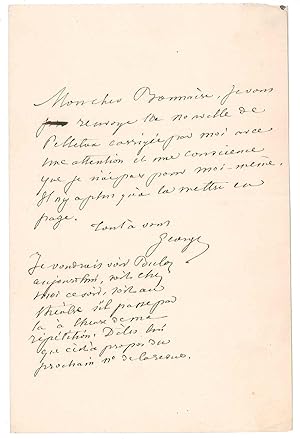 Mon cher Bonnaire, je vous
renvoye la nouvelle de
Pelletan corrigée par moi avec
une attention et une conscience
que je n'ai pas pour moi-même.
Il n'y a plus qu'à la mettre en
page.
Tout à vous
George
Je voudrais voir Buloz
aujourd'hui, soit chez
moi ce soir, soit au
théâtre s'il passe par
là à l'heure de ma
répétition. Dites lui
que c'est à propos du
prochain no de la revue.